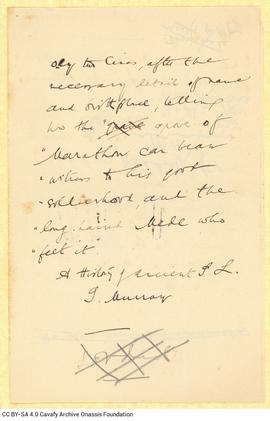 only two lines, after the
necessary detail of name
and birthplace, telling
how the "grove of
"Marathon can bear
"witness to his good
"soldierhood, and the
"long-haired Mede who
"felt it"
A History of Ancient G. L.
G. Murray
CC BY-SA 4.0 Cavafy Archive Onassis Foundation